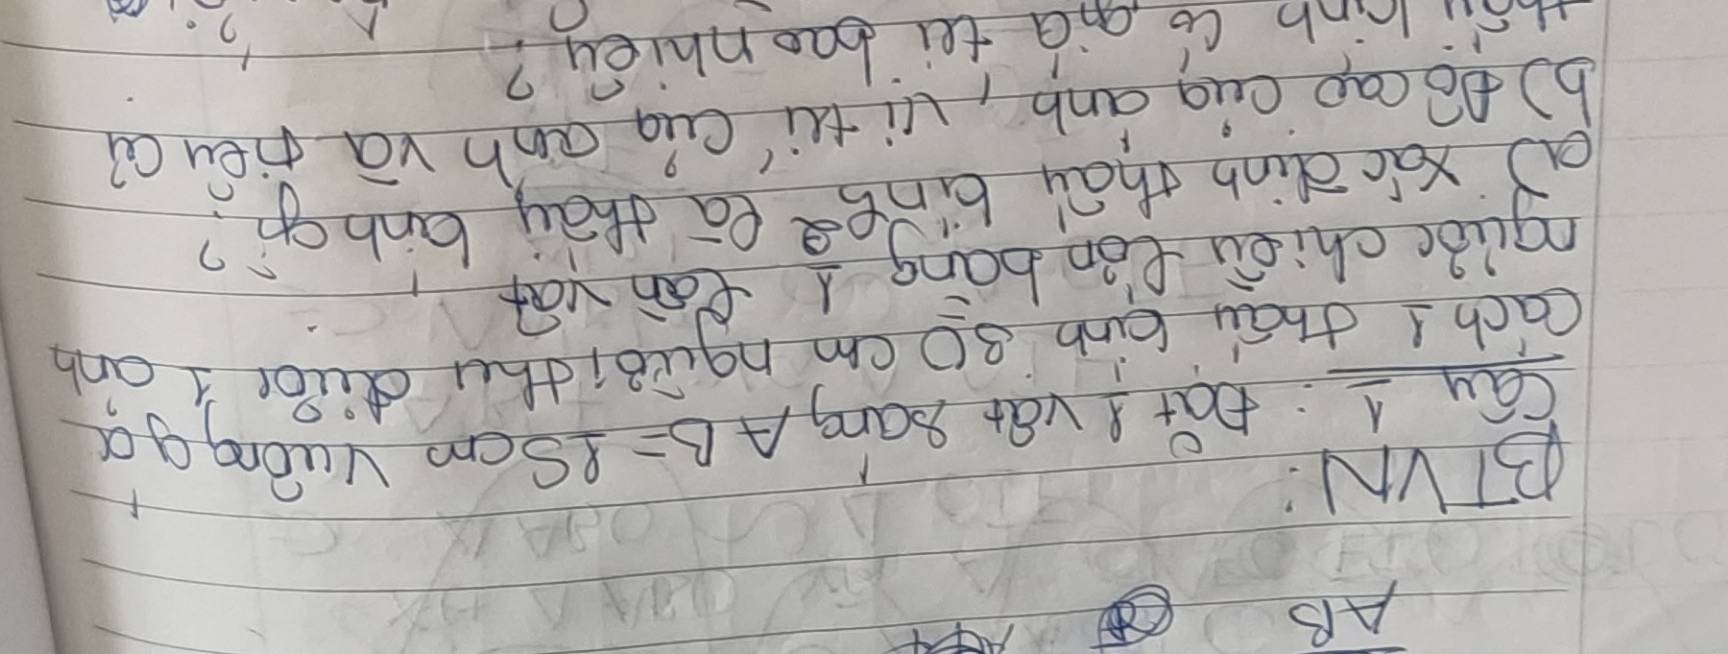 AB
BTVN:
Câu 1: Đặt 1 vật sáng AB = 15cm vuông góc
cách 1 thấu kính 30 cm người thu được 1 ảnh
ngược chiều lớn bằng 1/2 lần vật
a) xác định thấu kính là thấu kính gì?
b) Độ cao của ảnh, vị trí của ảnh và tiêu cự
thấu kính có giá trị bao nhiêu?